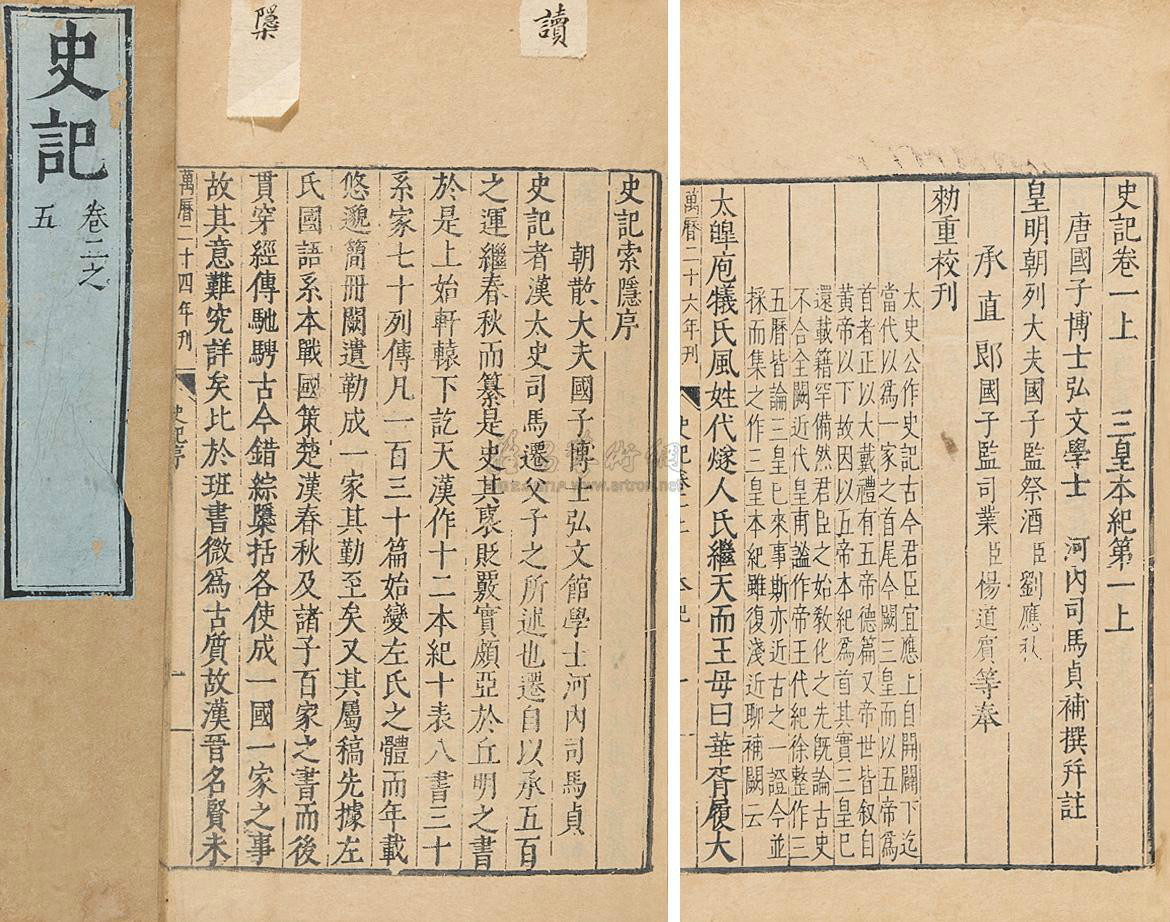 史記
卷二之
五
讀
檃
史記索隱序
朝散大夫國子博士弘文館學士河內司馬貞
史記者漢太史司馬遷父子之所述也遷自以承五百
之運繼春秋而纂是史其襃貶覈實頗亞於丘明之書
於是上始軒轅下訖天漢作十二本紀十表八書三十
系家七十列傳凡一百三十篇始變左氏之體而年載
悠邈簡冊闕遺勒成一家其勤至矣又其屬稿先據左
氏國語系本戰國策楚漢春秋及諸子百家之書而後
貫穿經傳馳騁古今錯綜檃括各使成一國一家之事
故其意難究詳矣比於班書微爲古質故漢晉名賢未
萬曆二十四年刊
史記序
一
史記卷一上 三皇本紀第一上
唐國子博士弘文學士 河內司馬貞補撰幷註
皇明朝列大夫國子監祭酒臣劉應秋
承直郎國子監司業臣楊道賓等奉
勑重校刊
太史公作史記古今君臣宜應上自開闢下迄
當代以爲一家之首尾今闕三皇而以五帝爲
首者正以大戴禮有五帝德篇又帝世皆叙自
黃帝以下故因以五帝本紀爲首其實三皇已
還載籍罕備然君臣之始敎化之先旣論古史
不合全闕近代皇甫謐作帝王代紀徐整作三
五曆皆論三皇已來事斯亦近古之一證今並
採而集之作三皇本紀雖復淺近聊補闕云
太皡庖犧氏風姓代燧人氏繼天而王母曰華胥履大
萬曆二十六年刊
史記卷一上
本紀
一
www.artron.net